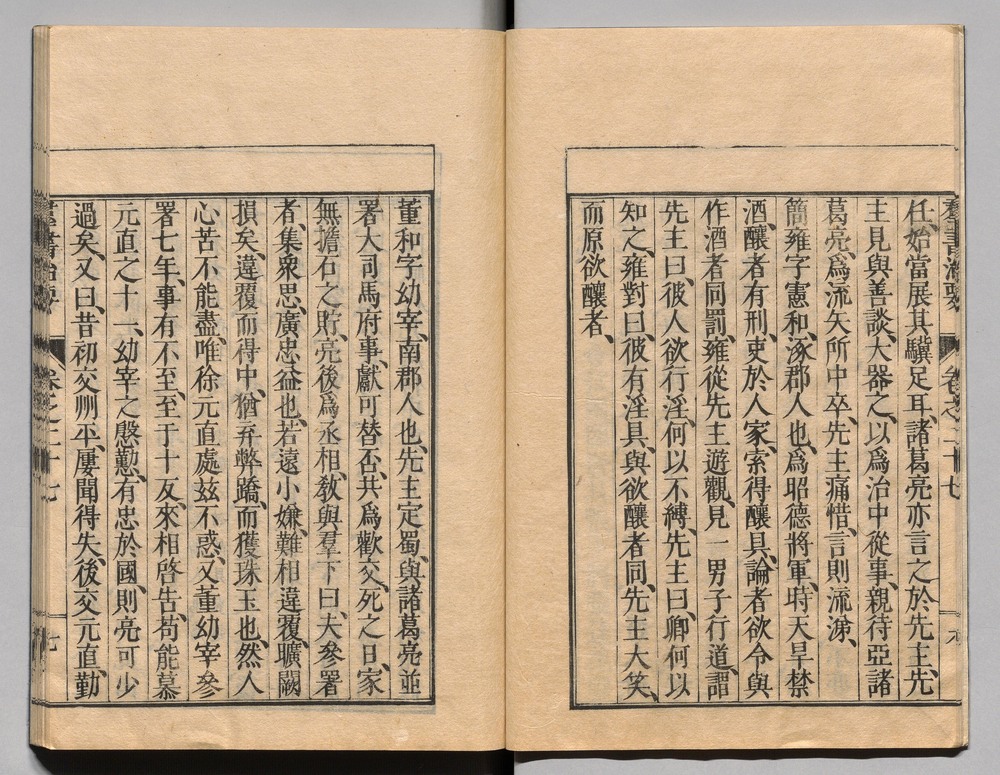 羣書治要 卷之二十七
任、始當展其驥足耳、諸葛亮亦言之於先主、先
主見與善談、大器之、以爲治中從事、親待亞諸
葛亮、爲流矢所中卒、先主痛惜、言則流涕、
簡雍字憲和、涿郡人也、爲昭德將軍、時天旱禁
酒、釀者有刑、吏於人家索得釀具、論者欲令與
作酒者同罰、雍從先主遊觀、見一男子行道、謂
先主曰、彼人欲行淫、何以不縛、先主曰、卿何以
知之、雍對曰、彼有淫具、與欲釀者同、先主大笑、
而原欲釀者、
董和字幼宰、南郡人也、先主定蜀、與諸葛亮並
署大司馬府事、獻可替否、共爲歡交、死之日、家
無擔石之貯、亮後爲丞相、敎與羣下曰、夫參署
者、集衆思、廣忠益也、若遠小嫌、難相違覆、曠闕
損矣、違覆而得中、猶弃弊蹻、而獲珠玉也、然人
心苦不能盡、唯徐元直處玆不惑、又董幼宰參
署七年、事有不至、至于十反、來相啓告、苟能慕
元直之十一、幼宰之慇懃、有忠於國、則亮可少
過矣、又曰、昔初交州平、屢聞得失、後交元直、勤
羣書治要 卷之二十七